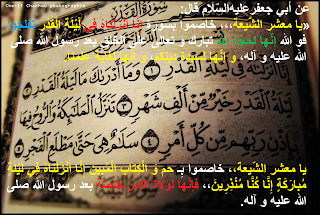 Cherif Chachou photographie
عن أبي جعفر عليه السلام قال:
«يا معشر الشيعة،،، خاصموا بسورة إنا أنزلناه في ليلة القدر تفلحوا
فو الله إنها لحجة الله تبارك و تعالى على الخلق بعد رسول الله صلى
الله عليه و آله، و إنها لسيدة دينكم، و إنها لغاية علمنا
لَيْلَةِ ٱلْقَدْرِ وَمَآ أَدْرَىٰكَ مَا لَيْلَةُ
ٱلْقَدْرِ لَيْلَةُ ٱلْقَدْرِ خَيْرٌ مِّنْ أَلْفِ شَهْرٍ
تَنَزَّلُ ٱلْمَلَٰٓئِكَةُ وَٱلرُّوحُ فِيهَا
بِإِذْنِ رَبِّهِم مِّن كُلِّ أَمْرٍ
سَلَٰمٌ هِىَ حَتَّىٰ مَطْلَعِ ٱلْفَجْرِ
يا معشر الشيعة،،، خاصموا بـ حم و الكتاب المبين إنا أنزلناه في ليلة
مباركة إنا كنا منذرين،،، فإنها لولاة الأمر خاصة بعد رسول الله صلى
الله عليه و آله.